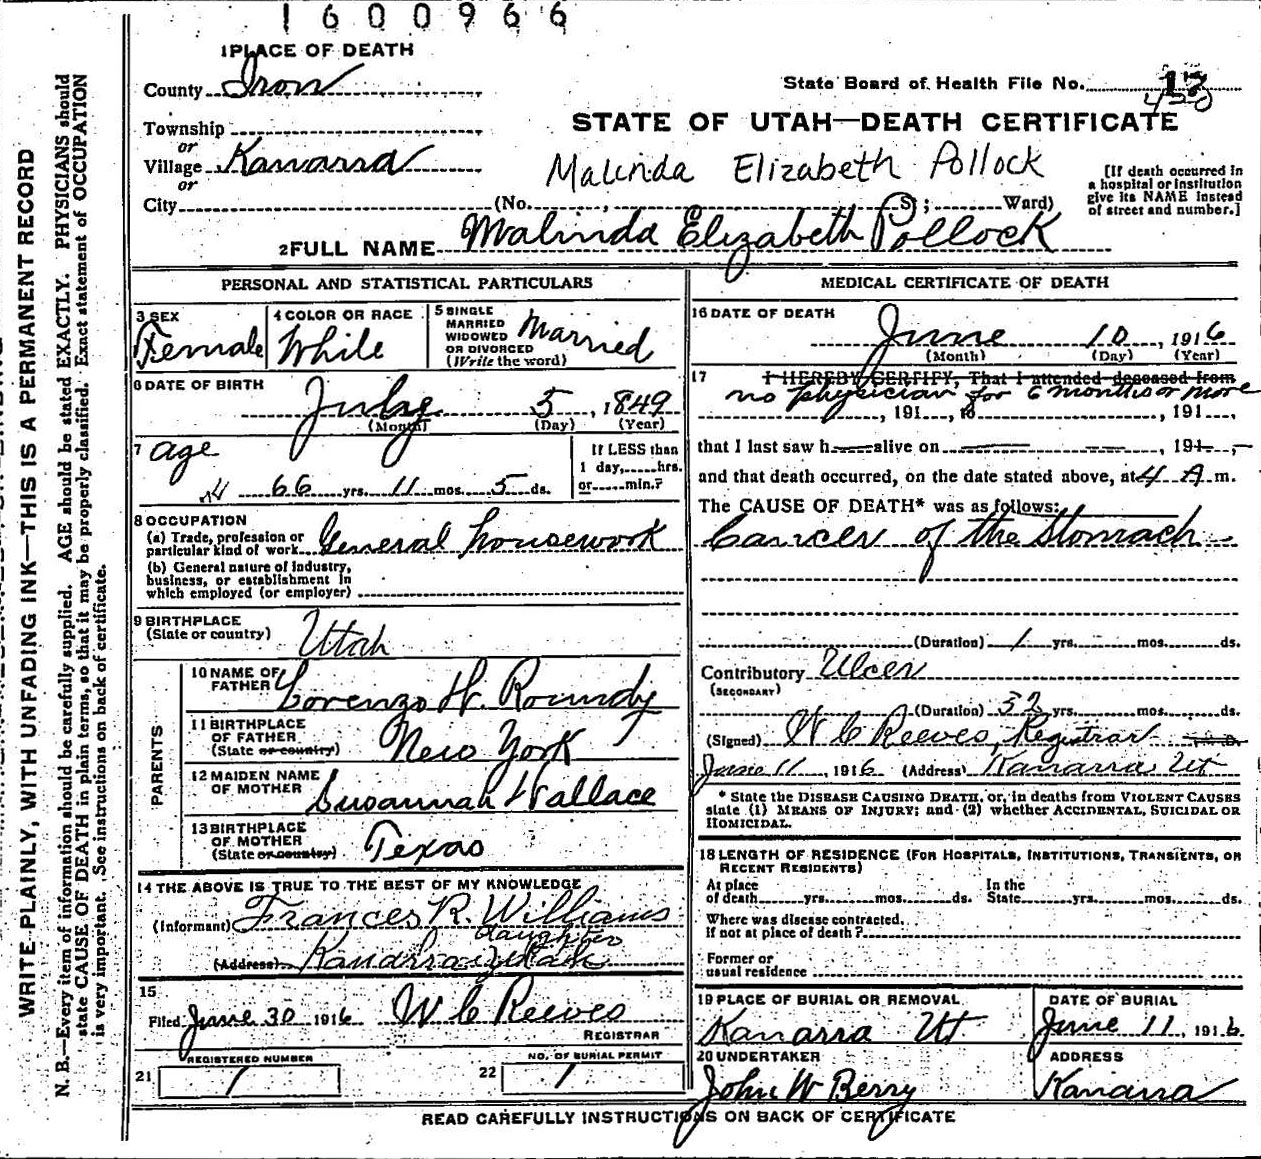 1600966
1 PLACE OF DEATH
County Iron
State Board of Health File No. 17
420
Township
or
Village Kanarra
or
City (No. , S; Ward)
STATE OF UTAH—DEATH CERTIFICATE
Malinda Elizabeth Pollock
[If death occurred in
a hospital or institution
give its NAME instead
of street and number.]
2 FULL NAME Malinda Elizabeth Pollock
PERSONAL AND STATISTICAL PARTICULARS
3 SEX
Female
4 COLOR OR RACE
White
5 SINGLE
MARRIED
WIDOWED
OR DIVORCED
(Write the word)
Married
6 DATE OF BIRTH
July 5, 1849
(Month) (Day) (Year)
7 age
66 yrs. 11 mos. 5 ds.
If LESS than
1 day, hrs.
or min.?
8 OCCUPATION
(a) Trade, profession or
particular kind of work General housework
(b) General nature of industry,
business, or establishment in
which employed (or employer)
9 BIRTHPLACE
(State or country) Utah
PARENTS
10 NAME OF
FATHER Lorenzo W. Roundy
11 BIRTHPLACE
OF FATHER
(State or country) New York
12 MAIDEN NAME
OF MOTHER Susannah Wallace
13 BIRTHPLACE
OF MOTHER
(State or country) Texas
14 THE ABOVE IS TRUE TO THE BEST OF MY KNOWLEDGE
(Informant) Frances R. Williams
daughter
(Address) Kanarra, Utah
15
Filed June 30 1916 W C Reeves
REGISTRAR
REGISTERED NUMBER
21 1
NO. OF BURIAL PERMIT
22 1
MEDICAL CERTIFICATE OF DEATH
16 DATE OF DEATH
June 10, 1916
(Month) (Day) (Year)
17 I HEREBY CERTIFY, That I attended deceased from
no physician for 6 months or more
, 191 , to , 191 ,
that I last saw h alive on , 191 ,
and that death occurred, on the date stated above, at 4 A m.
The CAUSE OF DEATH* was as follows:
Cancer of the Stomach
(Duration) 1 yrs. mos. ds.
Contributory Ulcer
(SECONDARY)
(Duration) 32 yrs. mos. ds.
(Signed) W C Reeves, Registrar
June 11, 1916 (Address) Kanarra Ut
* State the DISEASE CAUSING DEATH, or, in deaths from VIOLENT CAUSES
state (1) MEANS OF INJURY; and (2) whether ACCIDENTAL, SUICIDAL OR
HOMICIDAL.
18 LENGTH OF RESIDENCE (FOR HOSPITALS, INSTITUTIONS, TRANSIENTS, OR
RECENT RESIDENTS)
At place
of death yrs. mos. ds.
In the
State yrs. mos. ds.
Where was disease contracted.
if not at place of death?
Former or
usual residence
19 PLACE OF BURIAL OR REMOVAL
Kanarra Ut
DATE OF BURIAL
June 11, 1916
20 UNDERTAKER
John W Berry
ADDRESS
Kanarra
READ CAREFULLY INSTRUCTIONS ON BACK OF CERTIFICATE
WRITE PLAINLY, WITH UNFADING INK—THIS IS A PERMANENT RECORD
N. B.—Every item of information should be carefully supplied. AGE should be stated EXACTLY. PHYSICIANS should
state CAUSE OF DEATH in plain terms, so that it may be properly classified. Exact statement of OCCUPATION
is very important. See instructions on back of certificate.